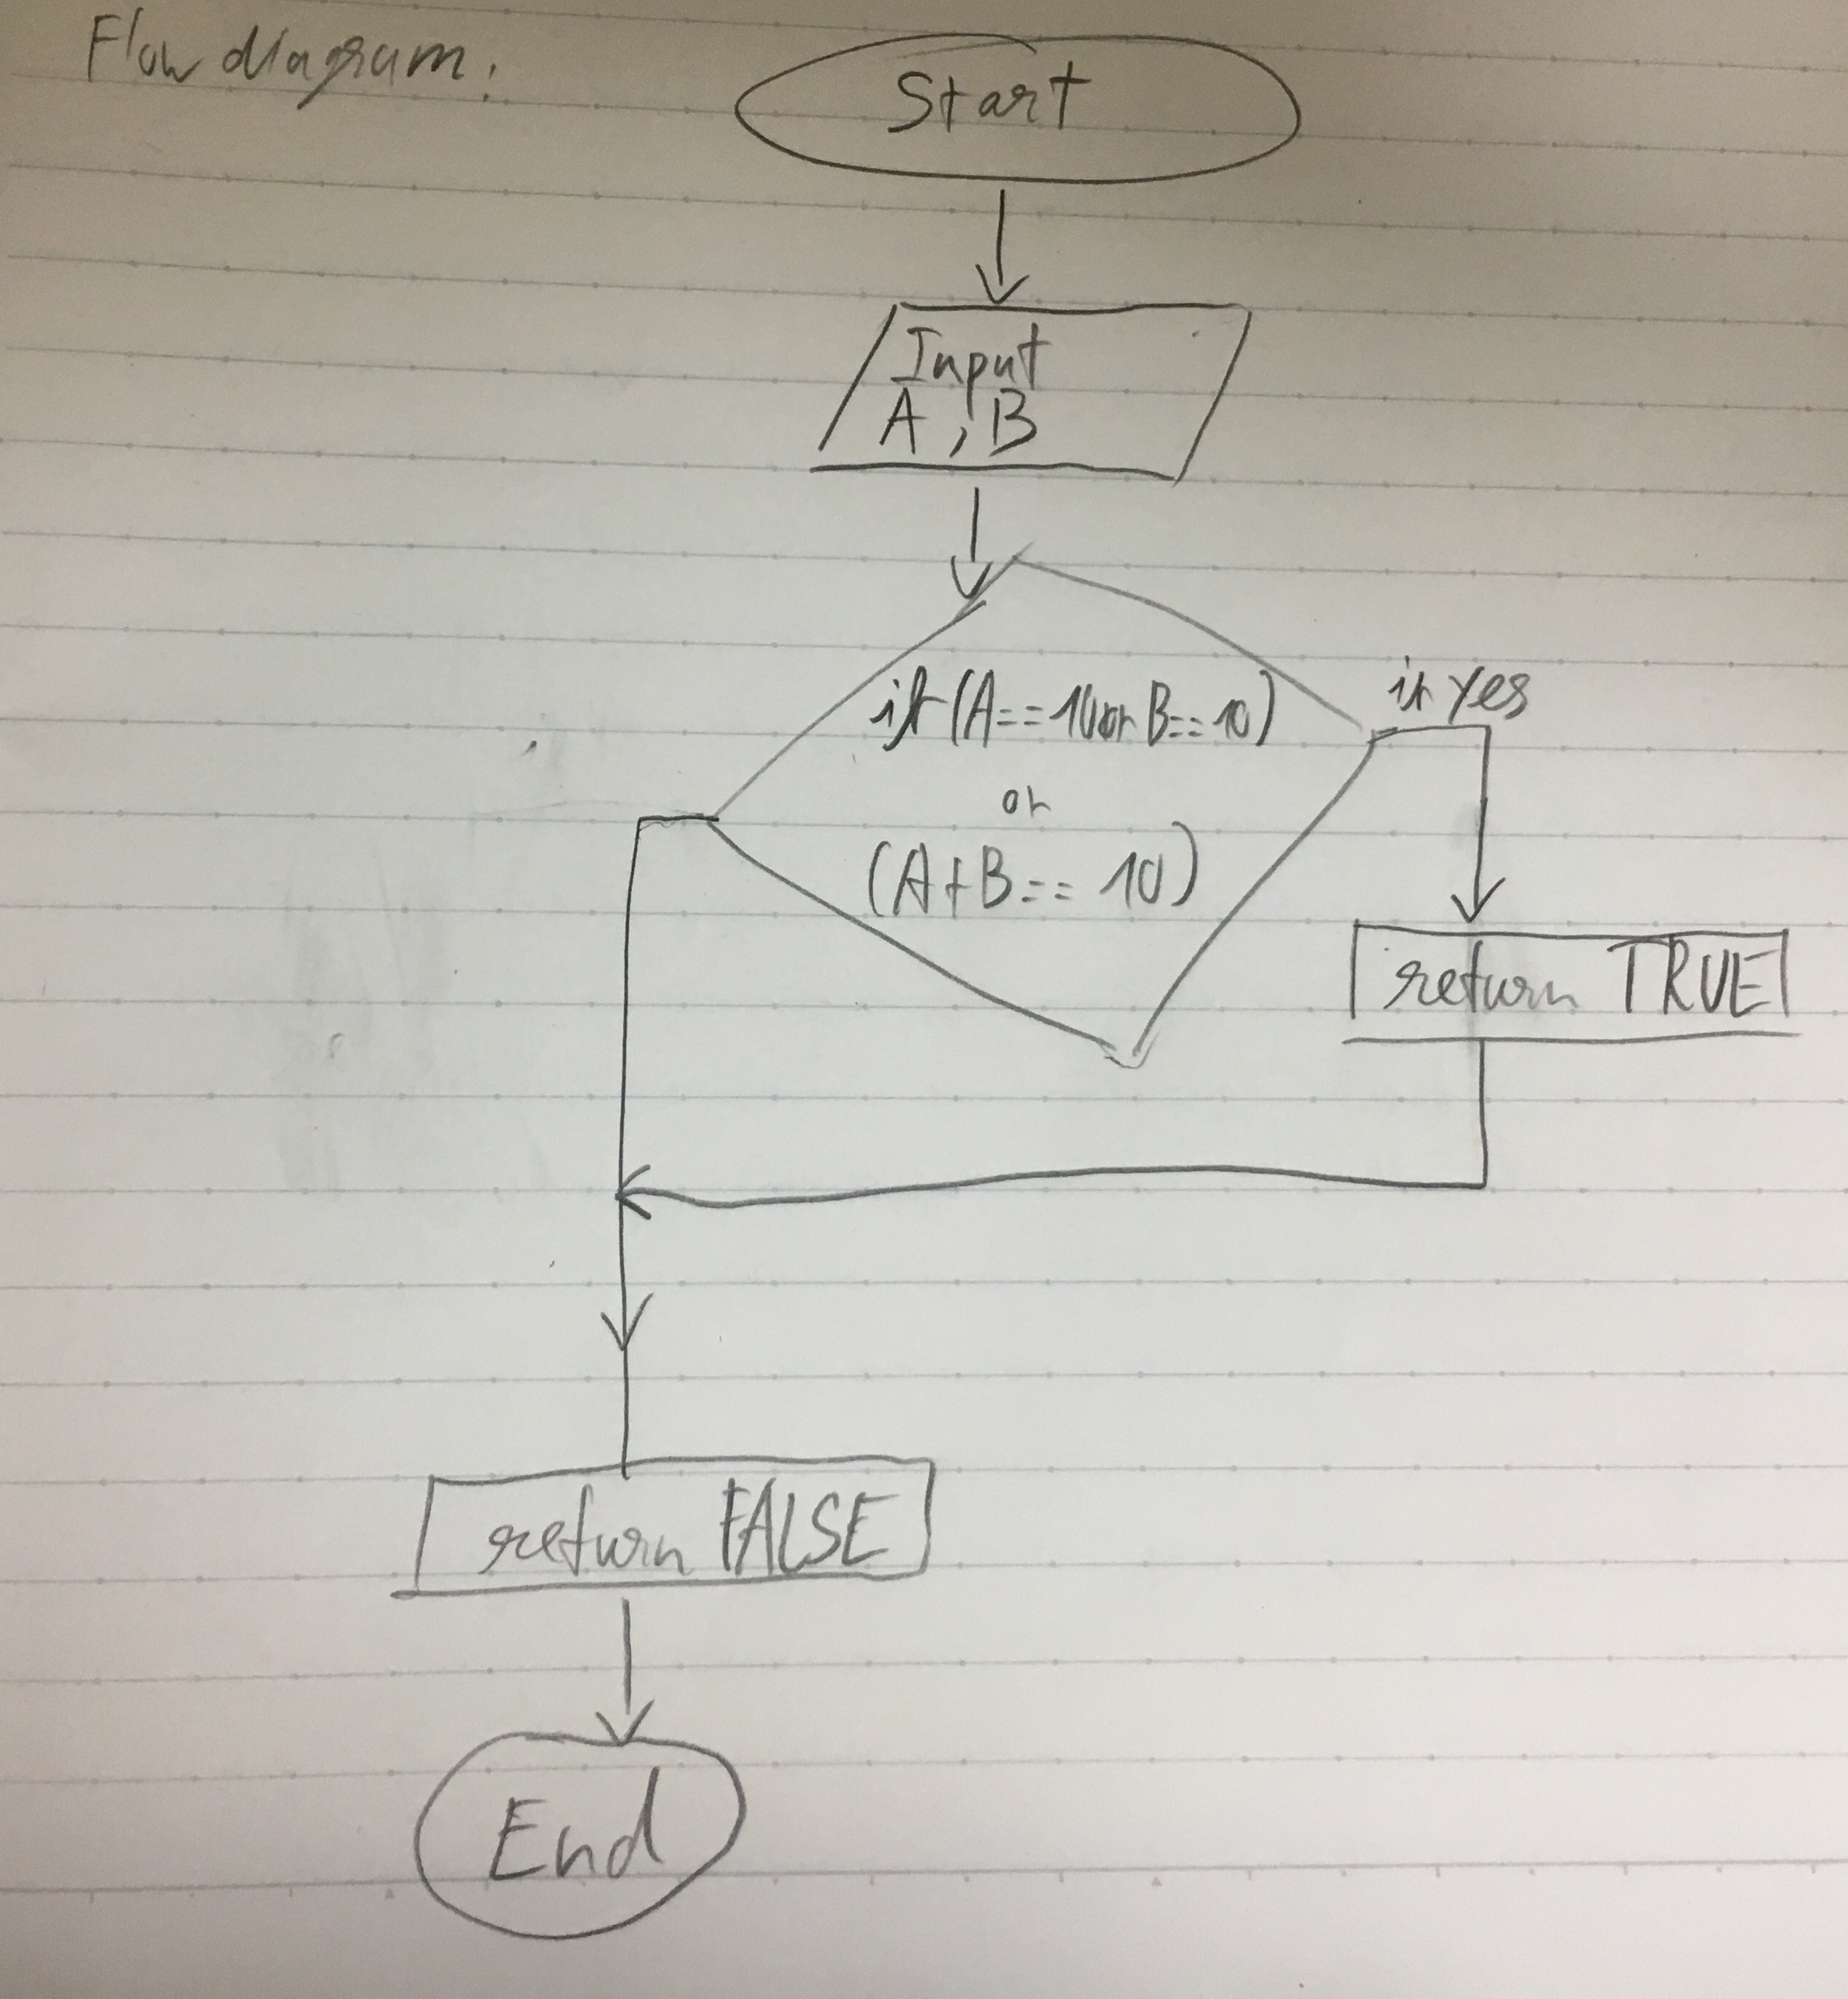 Flow diagram:
Start
Input
A, B
if (A==10 or B==10)
or
(A+B==10)
if yes
return TRUE
return FALSE
End